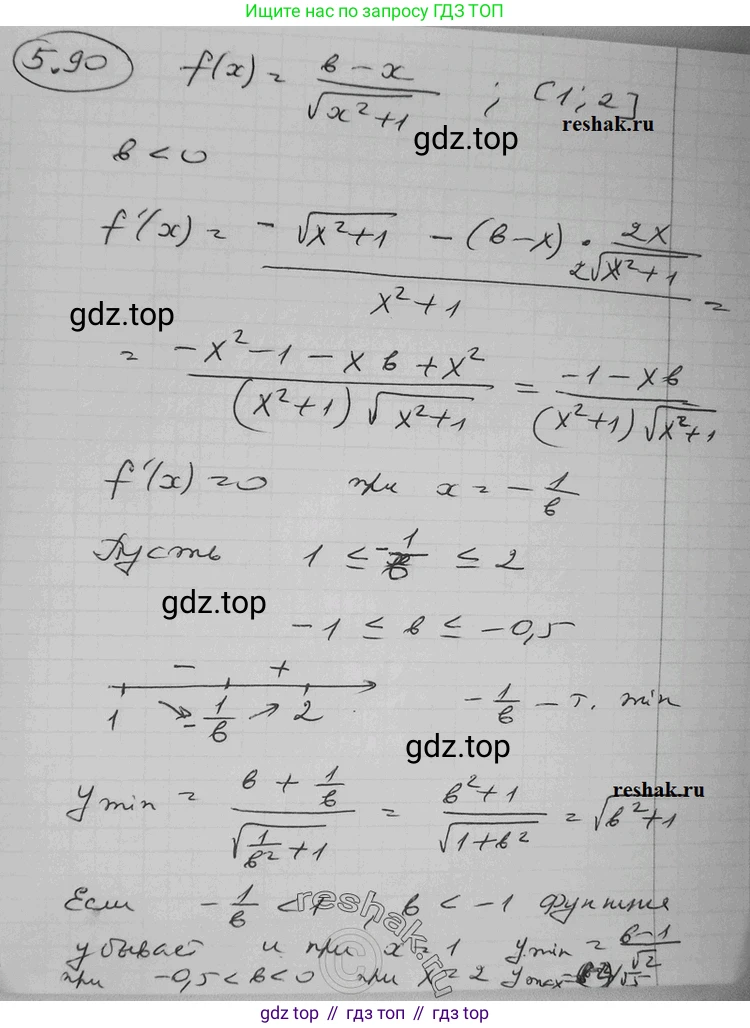 Ищите нас по запросу ГДЗ ТОП
5.90 f(x) = (в – x)/√(x²+1) ; [1; 2]
reshak.ru
gdz.top
в < 0
f'(x) = (–√(x²+1) – (в–x) · 2x/(2√(x²+1)))/(x²+1) =
gdz.top
= (–x²–1–xв+x²)/((x²+1)√(x²+1)) = (–1–xв)/((x²+1)√(x²+1))
gdz.top
f'(x)=0 при x = –1/в
Пусть 1 ≤ –1/в ≤ 2
gdz.top
–1 ≤ в ≤ –0,5
– +
1 –1/в 2 –1/в – т. min
gdz.top
y min = (в + 1/в)/√(1/в²+1) = (в²+1)/√(1+в²) = √(в²+1)
reshak.ru
Если –1/в < 1, в < –1 функция
reshak.ru
убывает и при x = 1 y min = (в–1)/√2
при –0,5 < в < 0 при x = 2 y max =
gdz.top // гдз топ // gdz.top